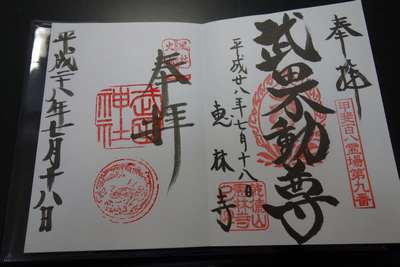 奉拝
甲斐百八霊場第九番
武田不動尊
平成廿八年七月十八日
恵林寺
乾徳山
恵林寺
奉拝
武田
神社
平成二十八年七月十八日